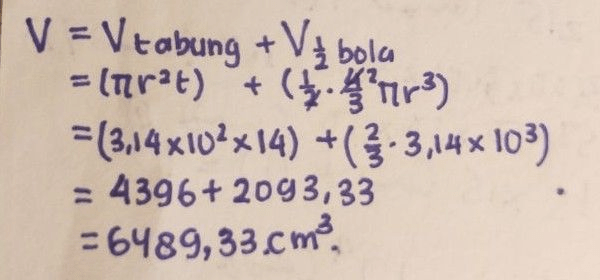 V = Vtabung + V½ bola
= (πr²t) + (½ · 4/3 ² πr³)
= (3,14 x 10² x 14) + (2/3 · 3,14 x 10³)
= 4396 + 2093,33
= 6489,33 cm³.